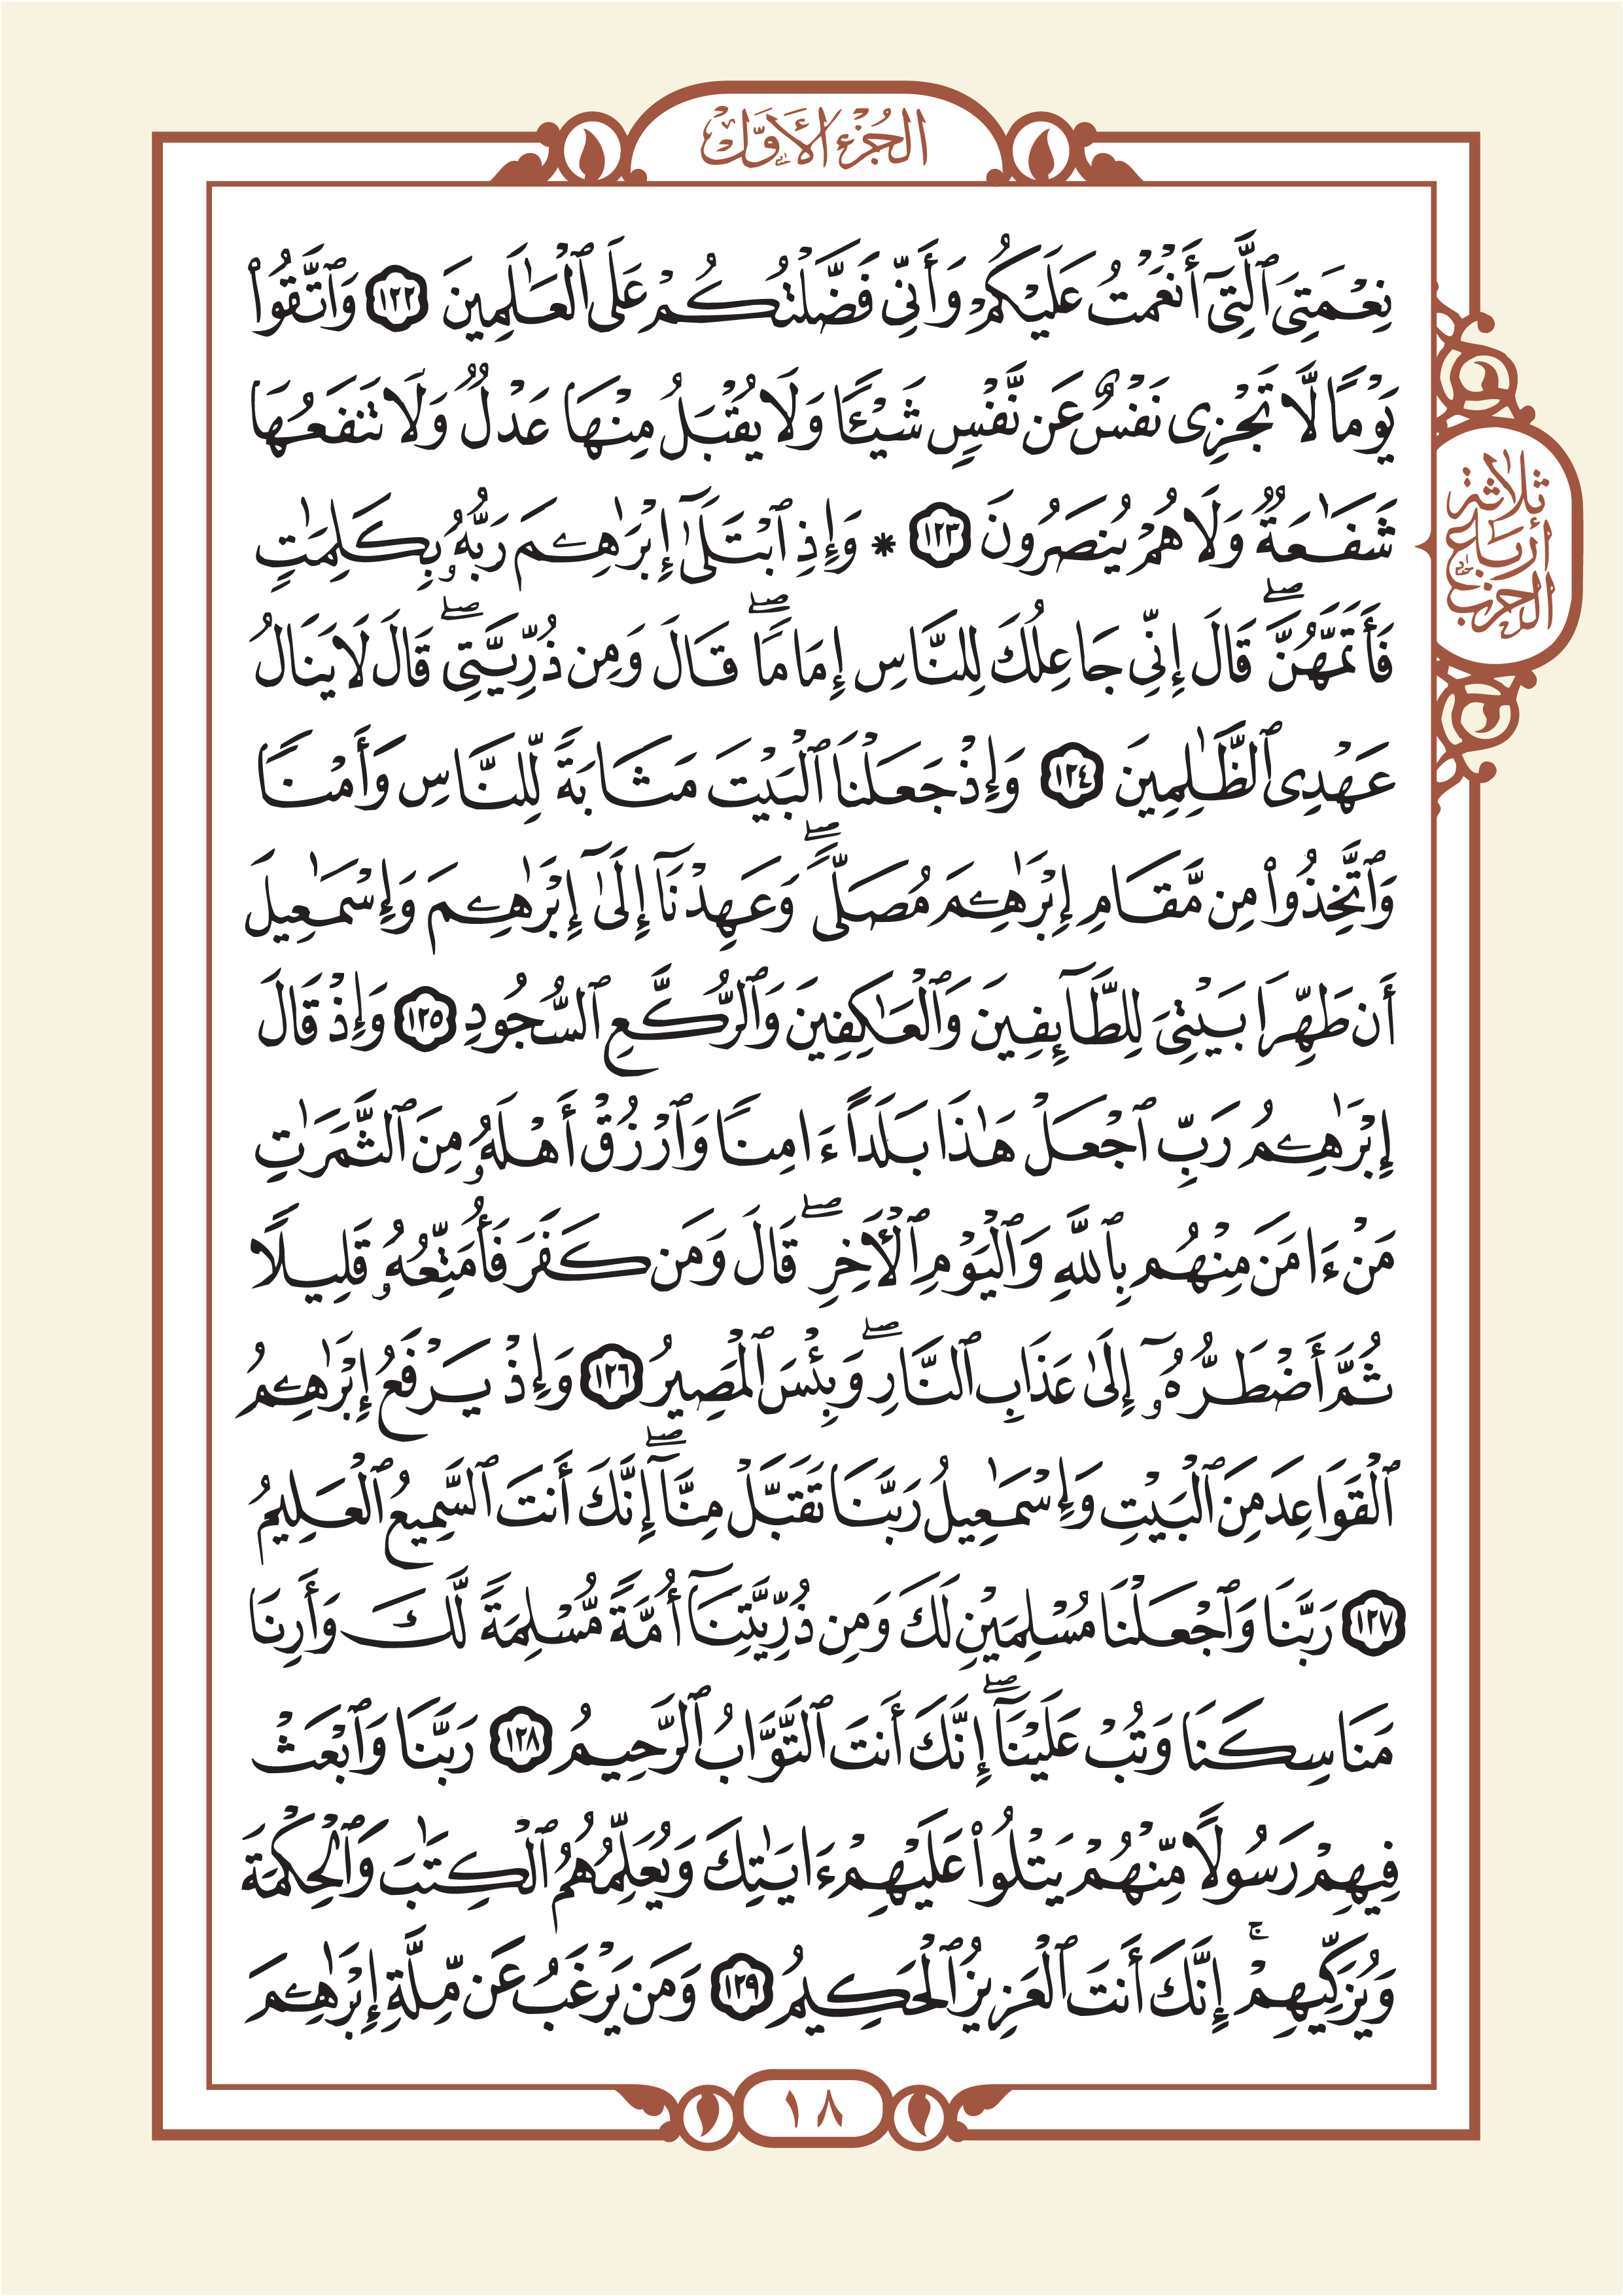 الجُزْءُ الأَوَّلُ
نِعْمَتِىَ ٱلَّتِىٓ أَنْعَمْتُ عَلَيْكُمْ وَأَنِّى فَضَّلْتُكُمْ عَلَى ٱلْعَٰلَمِينَ ١٢٢ وَٱتَّقُوا۟
يَوْمًا لَّا تَجْزِى نَفْسٌ عَن نَّفْسٍ شَيْـًٔا وَلَا يُقْبَلُ مِنْهَا عَدْلٌ وَلَا تَنفَعُهَا
شَفَٰعَةٌ وَلَا هُمْ يُنصَرُونَ ١٢٣ * وَإِذِ ٱبْتَلَىٰٓ إِبْرَٰهِۦمَ رَبُّهُۥ بِكَلِمَٰتٍ
فَأَتَمَّهُنَّۖ قَالَ إِنِّى جَاعِلُكَ لِلنَّاسِ إِمَامًاۖ قَالَ وَمِن ذُرِّيَّتِىۖ قَالَ لَا يَنَالُ
عَهْدِى ٱلظَّٰلِمِينَ ١٢٤ وَإِذْ جَعَلْنَا ٱلْبَيْتَ مَثَابَةً لِّلنَّاسِ وَأَمْنًا
وَٱتَّخِذُوا۟ مِن مَّقَامِ إِبْرَٰهِۦمَ مُصَلًّىۖ وَعَهِدْنَآ إِلَىٰٓ إِبْرَٰهِۦمَ وَإِسْمَٰعِيلَ
أَن طَهِّرَا بَيْتِىَ لِلطَّآئِفِينَ وَٱلْعَٰكِفِينَ وَٱلرُّكَّعِ ٱلسُّجُودِ ١٢٥ وَإِذْ قَالَ
إِبْرَٰهِۦمُ رَبِّ ٱجْعَلْ هَٰذَا بَلَدًا ءَامِنًا وَٱرْزُقْ أَهْلَهُۥ مِنَ ٱلثَّمَرَٰتِ
مَنْ ءَامَنَ مِنْهُم بِٱللَّهِ وَٱلْيَوْمِ ٱلْءَاخِرِۖ قَالَ وَمَن كَفَرَ فَأُمَتِّعُهُۥ قَلِيلًا
ثُمَّ أَضْطَرُّهُۥٓ إِلَىٰ عَذَابِ ٱلنَّارِۖ وَبِئْسَ ٱلْمَصِيرُ ١٢٦ وَإِذْ يَرْفَعُ إِبْرَٰهِۦمُ
ٱلْقَوَاعِدَ مِنَ ٱلْبَيْتِ وَإِسْمَٰعِيلُ رَبَّنَا تَقَبَّلْ مِنَّآۖ إِنَّكَ أَنتَ ٱلسَّمِيعُ ٱلْعَلِيمُ
١٢٧ رَبَّنَا وَٱجْعَلْنَا مُسْلِمَيْنِ لَكَ وَمِن ذُرِّيَّتِنَآ أُمَّةً مُّسْلِمَةً لَّكَ وَأَرِنَا
مَنَاسِكَنَا وَتُبْ عَلَيْنَآۖ إِنَّكَ أَنتَ ٱلتَّوَّابُ ٱلرَّحِيمُ ١٢٨ رَبَّنَا وَٱبْعَثْ
فِيهِمْ رَسُولًا مِّنْهُمْ يَتْلُوا۟ عَلَيْهِمْ ءَايَٰتِكَ وَيُعَلِّمُهُمُ ٱلْكِتَٰبَ وَٱلْحِكْمَةَ
وَيُزَكِّيهِمْۚ إِنَّكَ أَنتَ ٱلْعَزِيزُ ٱلْحَكِيمُ ١٢٩ وَمَن يَرْغَبُ عَن مِّلَّةِ إِبْرَٰهِۦمَ
ثلاثة
أرباع
الحزب
١٨